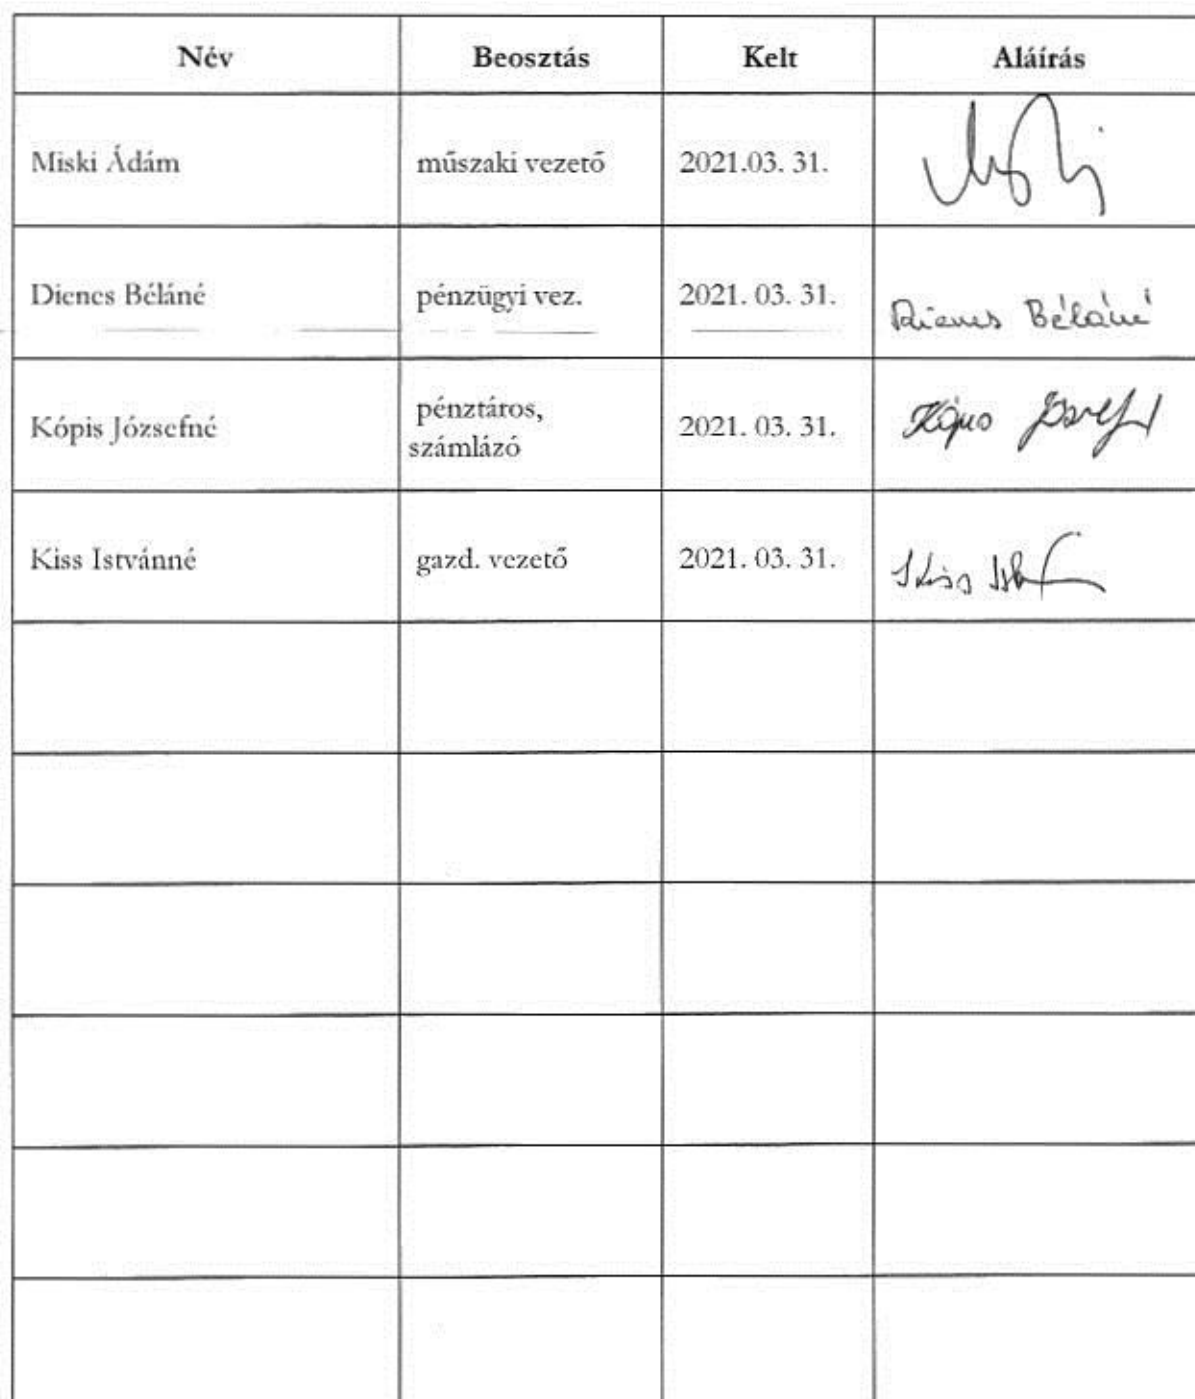 Név Beosztás Kelt Aláírás
Miski Ádám műszaki vezető 2021.03. 31.
Dienes Béláné pénzügyi vez. 2021. 03. 31. Dienes Béláné
Kópis Józsefné pénztáros, 2021. 03. 31.
számlázó
Kiss Istvánné gazd. vezető 2021. 03. 31. Kiss